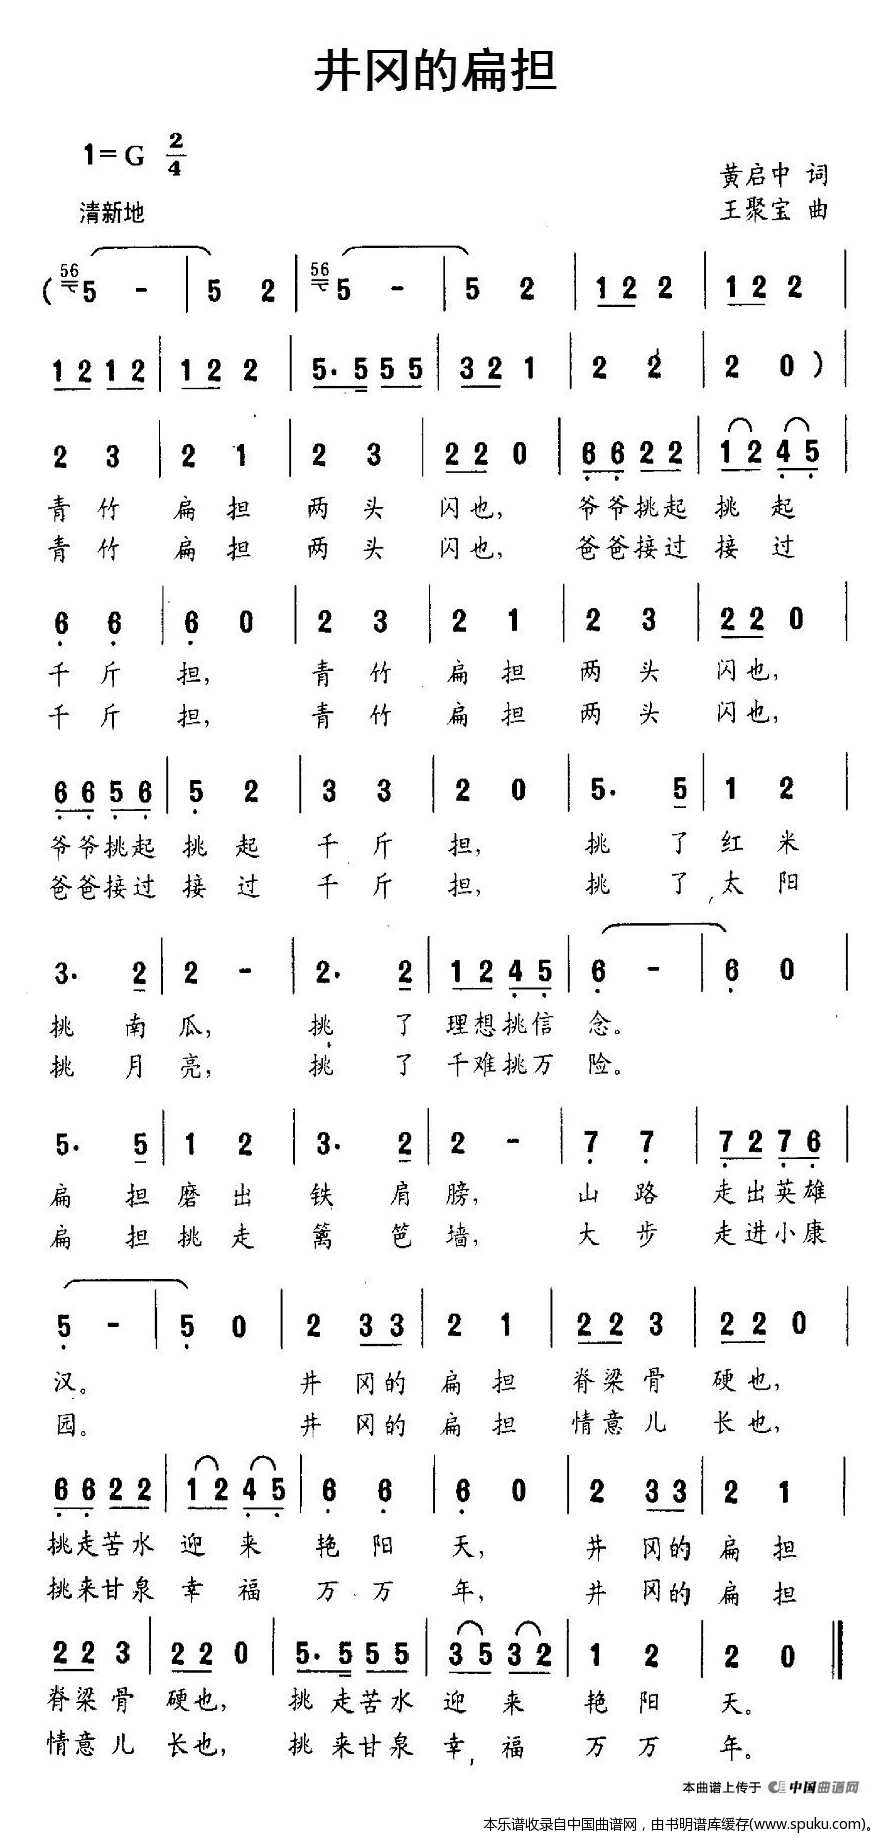 井冈的扁担
1=G 2/4
黄启中 词
清新地
王聚宝 曲
( 56 5 - | 5 2 | 56 5 - | 5 2 | 1 2 2 | 1 2 2 |
1 2 1 2 | 1 2 2 | 5. 5 5 5 | 3 2 1 | 2 2 | 2 0 ) |
2 3 | 2 1 | 2 3 | 2 2 0 | 6 6 2 2 | 1 2 4 5 |
青竹 扁担 两头 闪也, 爷爷挑起 挑起
青竹 扁担 两头 闪也, 爸爸接过 接过
6 6 | 6 0 | 2 3 | 2 1 | 2 3 | 2 2 0 |
千斤 担, 青竹 扁担 两头 闪也,
千斤 担, 青竹 扁担 两头 闪也,
6 6 5 6 | 5 2 | 3 3 | 2 0 | 5. 5 | 1 2 |
爷爷挑起 挑起 千斤 担, 挑了 红米
爸爸接过 接过 千斤 担, 挑了 太阳
3. 2 | 2 - | 2. 2 | 1 2 4 5 | 6 - | 6 0 |
挑南 瓜, 挑了 理想挑信 念。
挑月 亮, 挑了 千难挑万 险。
5. 5 | 1 2 | 3. 2 | 2 - | 7 7 | 7 2 7 6 |
扁担 磨出 铁肩 膀, 山路 走出英雄
扁担 挑走 篱笆 墙, 大步 走进小康
5 - | 5 0 | 2 3 3 | 2 1 | 2 2 3 | 2 2 0 |
汉。 井冈的 扁担 脊梁骨 硬也,
园。 井冈的 扁担 情意儿 长也,
6 6 2 2 | 1 2 4 5 | 6 6 | 6 0 | 2 3 3 | 2 1 |
挑走苦水 迎来 艳阳 天, 井冈的 扁担
挑来甘泉 幸福 万万 年, 井冈的 扁担
2 2 3 | 2 2 0 | 5. 5 5 5 | 3 5 3 2 | 1 2 | 2 0 ‖
脊梁骨 硬也, 挑走苦水 迎来 艳阳 天。
情意儿 长也, 挑来甘泉 幸福 万万 年。
本曲谱上传于 中国曲谱网
本乐谱收录自中国曲谱网，由书明谱库缓存(www.spuku.com)。